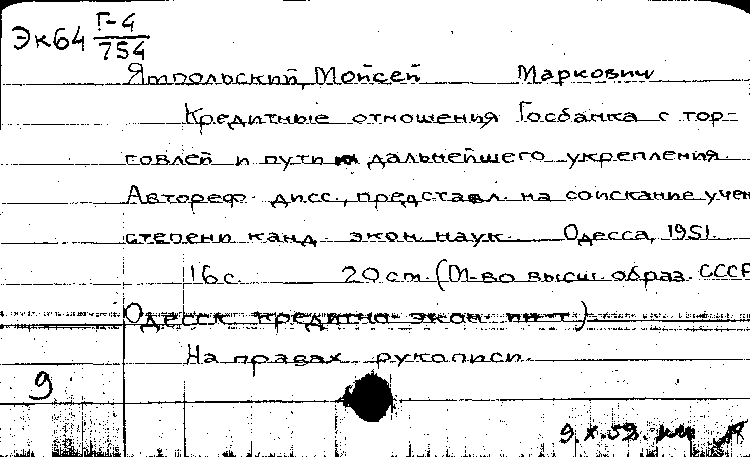 Эк64 Г-4
754
Ямпольский, Мойсей Маркович
Кредитные отношения Госбанка с тор-
говлей и пути дальнейшего укрепления.
Автореф. дисс., представл. на соискание учен
степени канд. экон. наук. Одесса, 1951.
16 с. 20 cm. (М-во высш. образ. СССР
Одесск. кредитно-экон. ин-т)
На правах рукописи.
9
9.X.52.